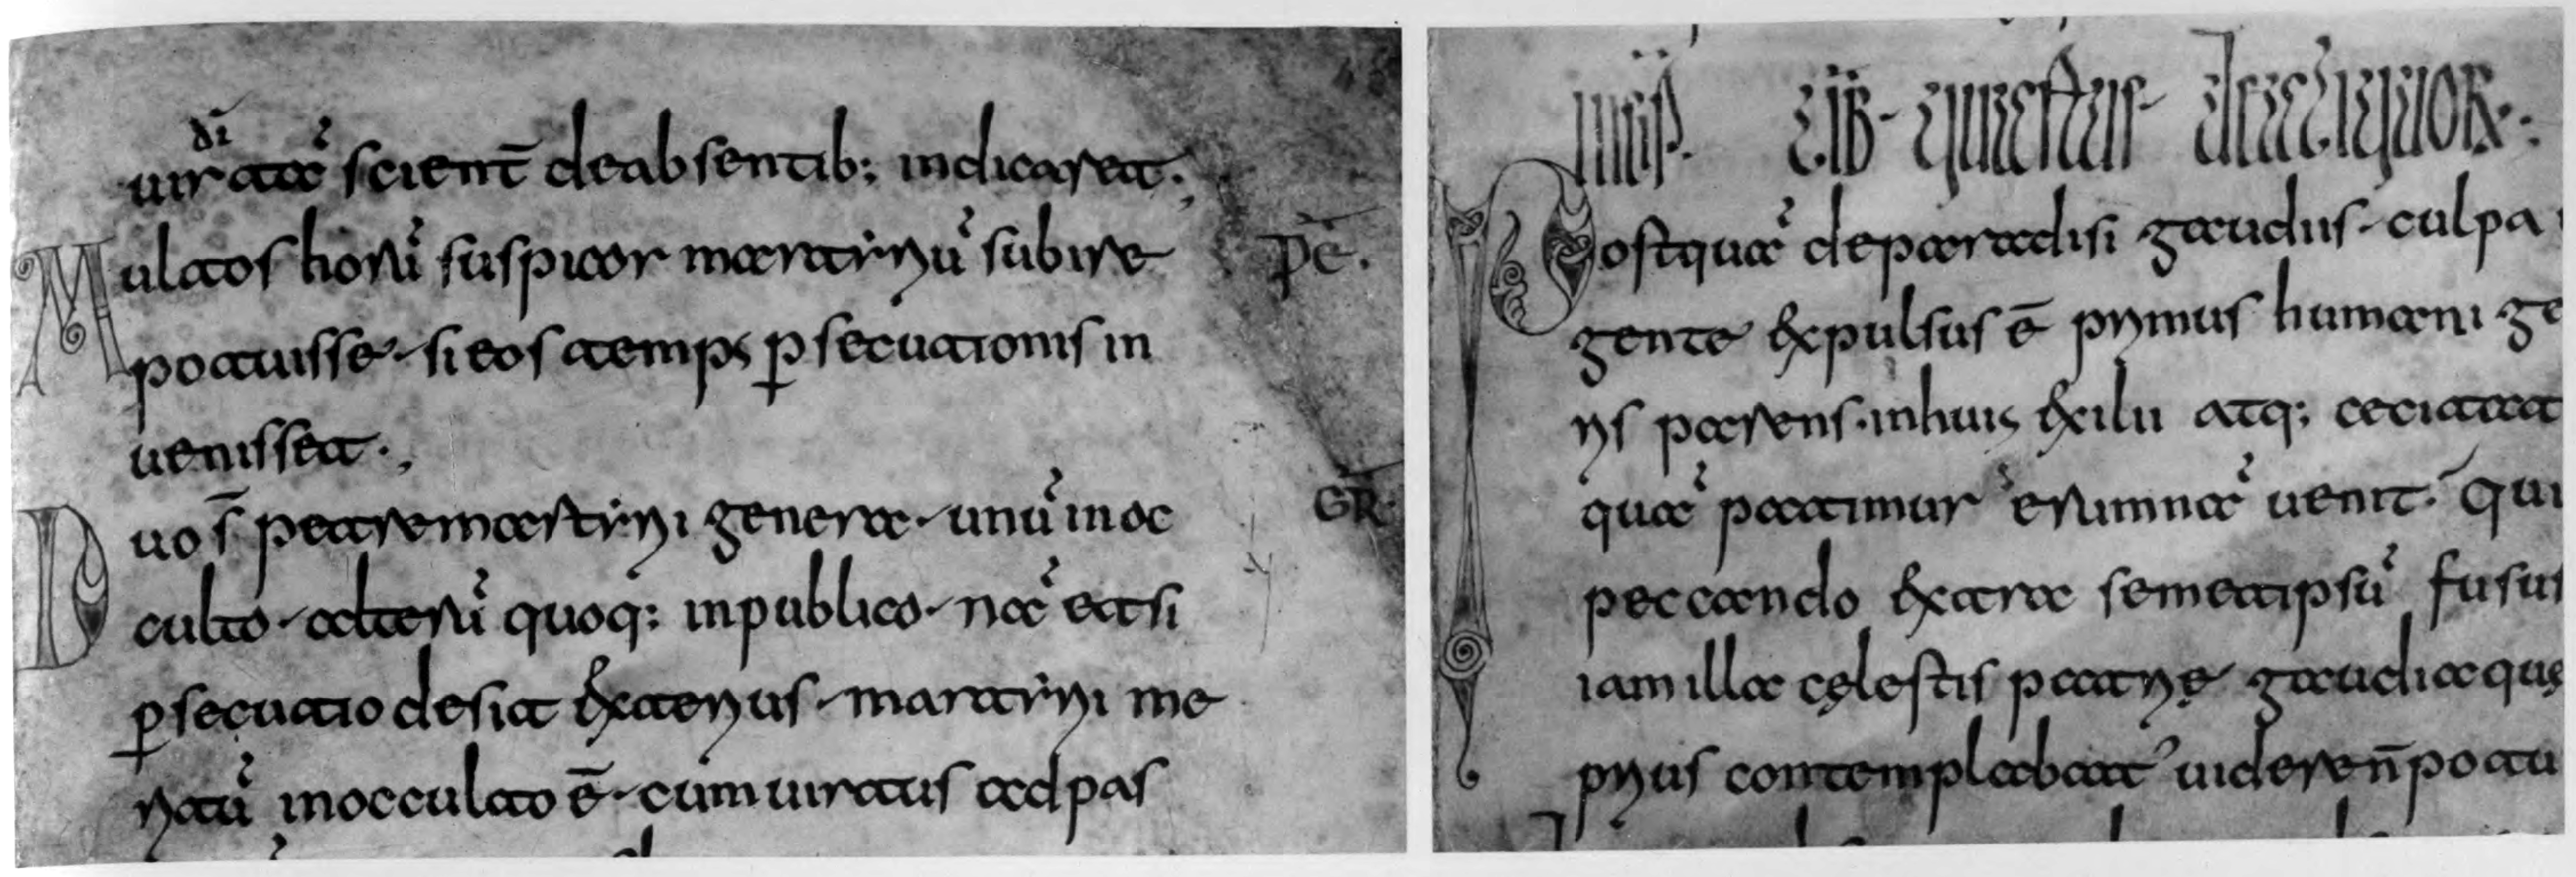 uir di tā scient̄ de absentib; indicaret.
Multos horū suspicor martyriū subire PE.
potuisse. si eos temps psecutionis in
uenisset.
Duo s̄ petre martyrii genera. unū in oc GR.
culto. alterū quoq; in publico. nā etsi
psecutio desit exterius. martyrii me
ritū in occulto ē. cum uirtus ad pas
INCIP. LIB. QUARTUS DIALOGOR.
Postquā de paradisi gaudiis. culpa
gente expulsus ē primus humani ge
ris parens. in huis exilii atq; cecitat
quā patimur erumnā uenit. Qui
peccando extra semetipsū fusus
iam illa cęlestis patrię gaudia quę
prius contemplabat' uidere n̄ potu